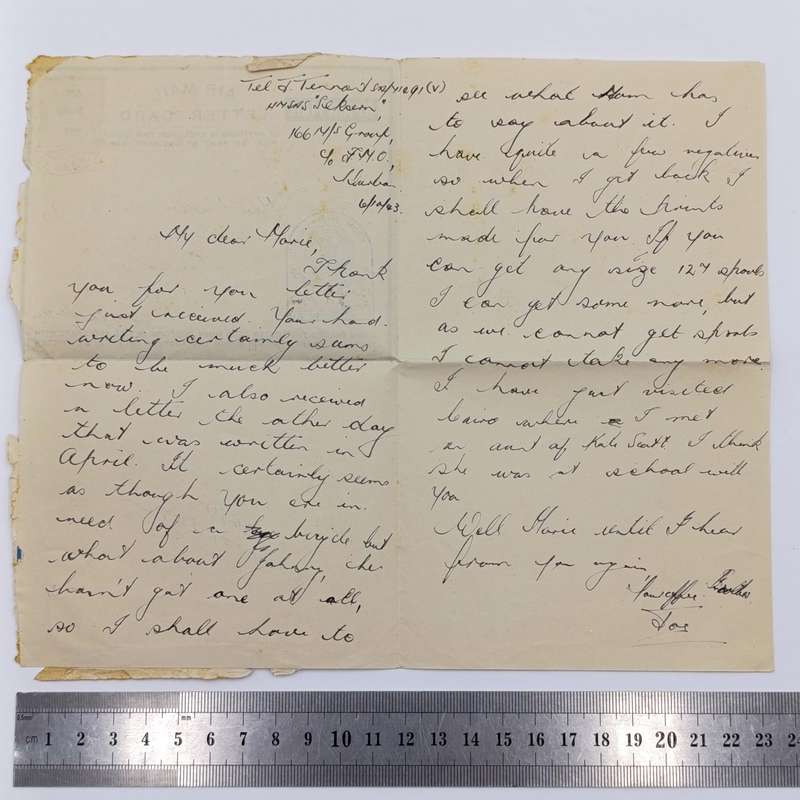 Tel J Tennant 502/71291 (V)
HMSAS "Seksern",
166 M/S Group,
c/o F.M.O,
Durban.
6/10/43.
My dear Marie,
Thank
you for you letter
just received. Your hand-
writing certainly seems
to be much better
now. I also received
a letter the other day
that was written in
April. It certainly seems
as though you are in
need of a bicycle but
what about Johnny, he
hasn't got one at all,
so I shall have to
see what Mom has
to say about it. I
have quite a few negatives
so when I get back I
shall have the prints
made for you. If you
can get any size 127 spools
I can get some more, but
as we cannot get spools
I cannot take any more.
I have just visited
Cairo where I met
an aunt of Kate Scott. I think
she was at school with
you
Well Marie until I hear
from you again
Your affec. Brother
Jos
AIR MAIL
LETTER CARD
0,5mm
mm
cm 1 2 3 4 5 6 7 8 9 10 11 12 13 14 15 16 17 18 19 20 21 22 23 24